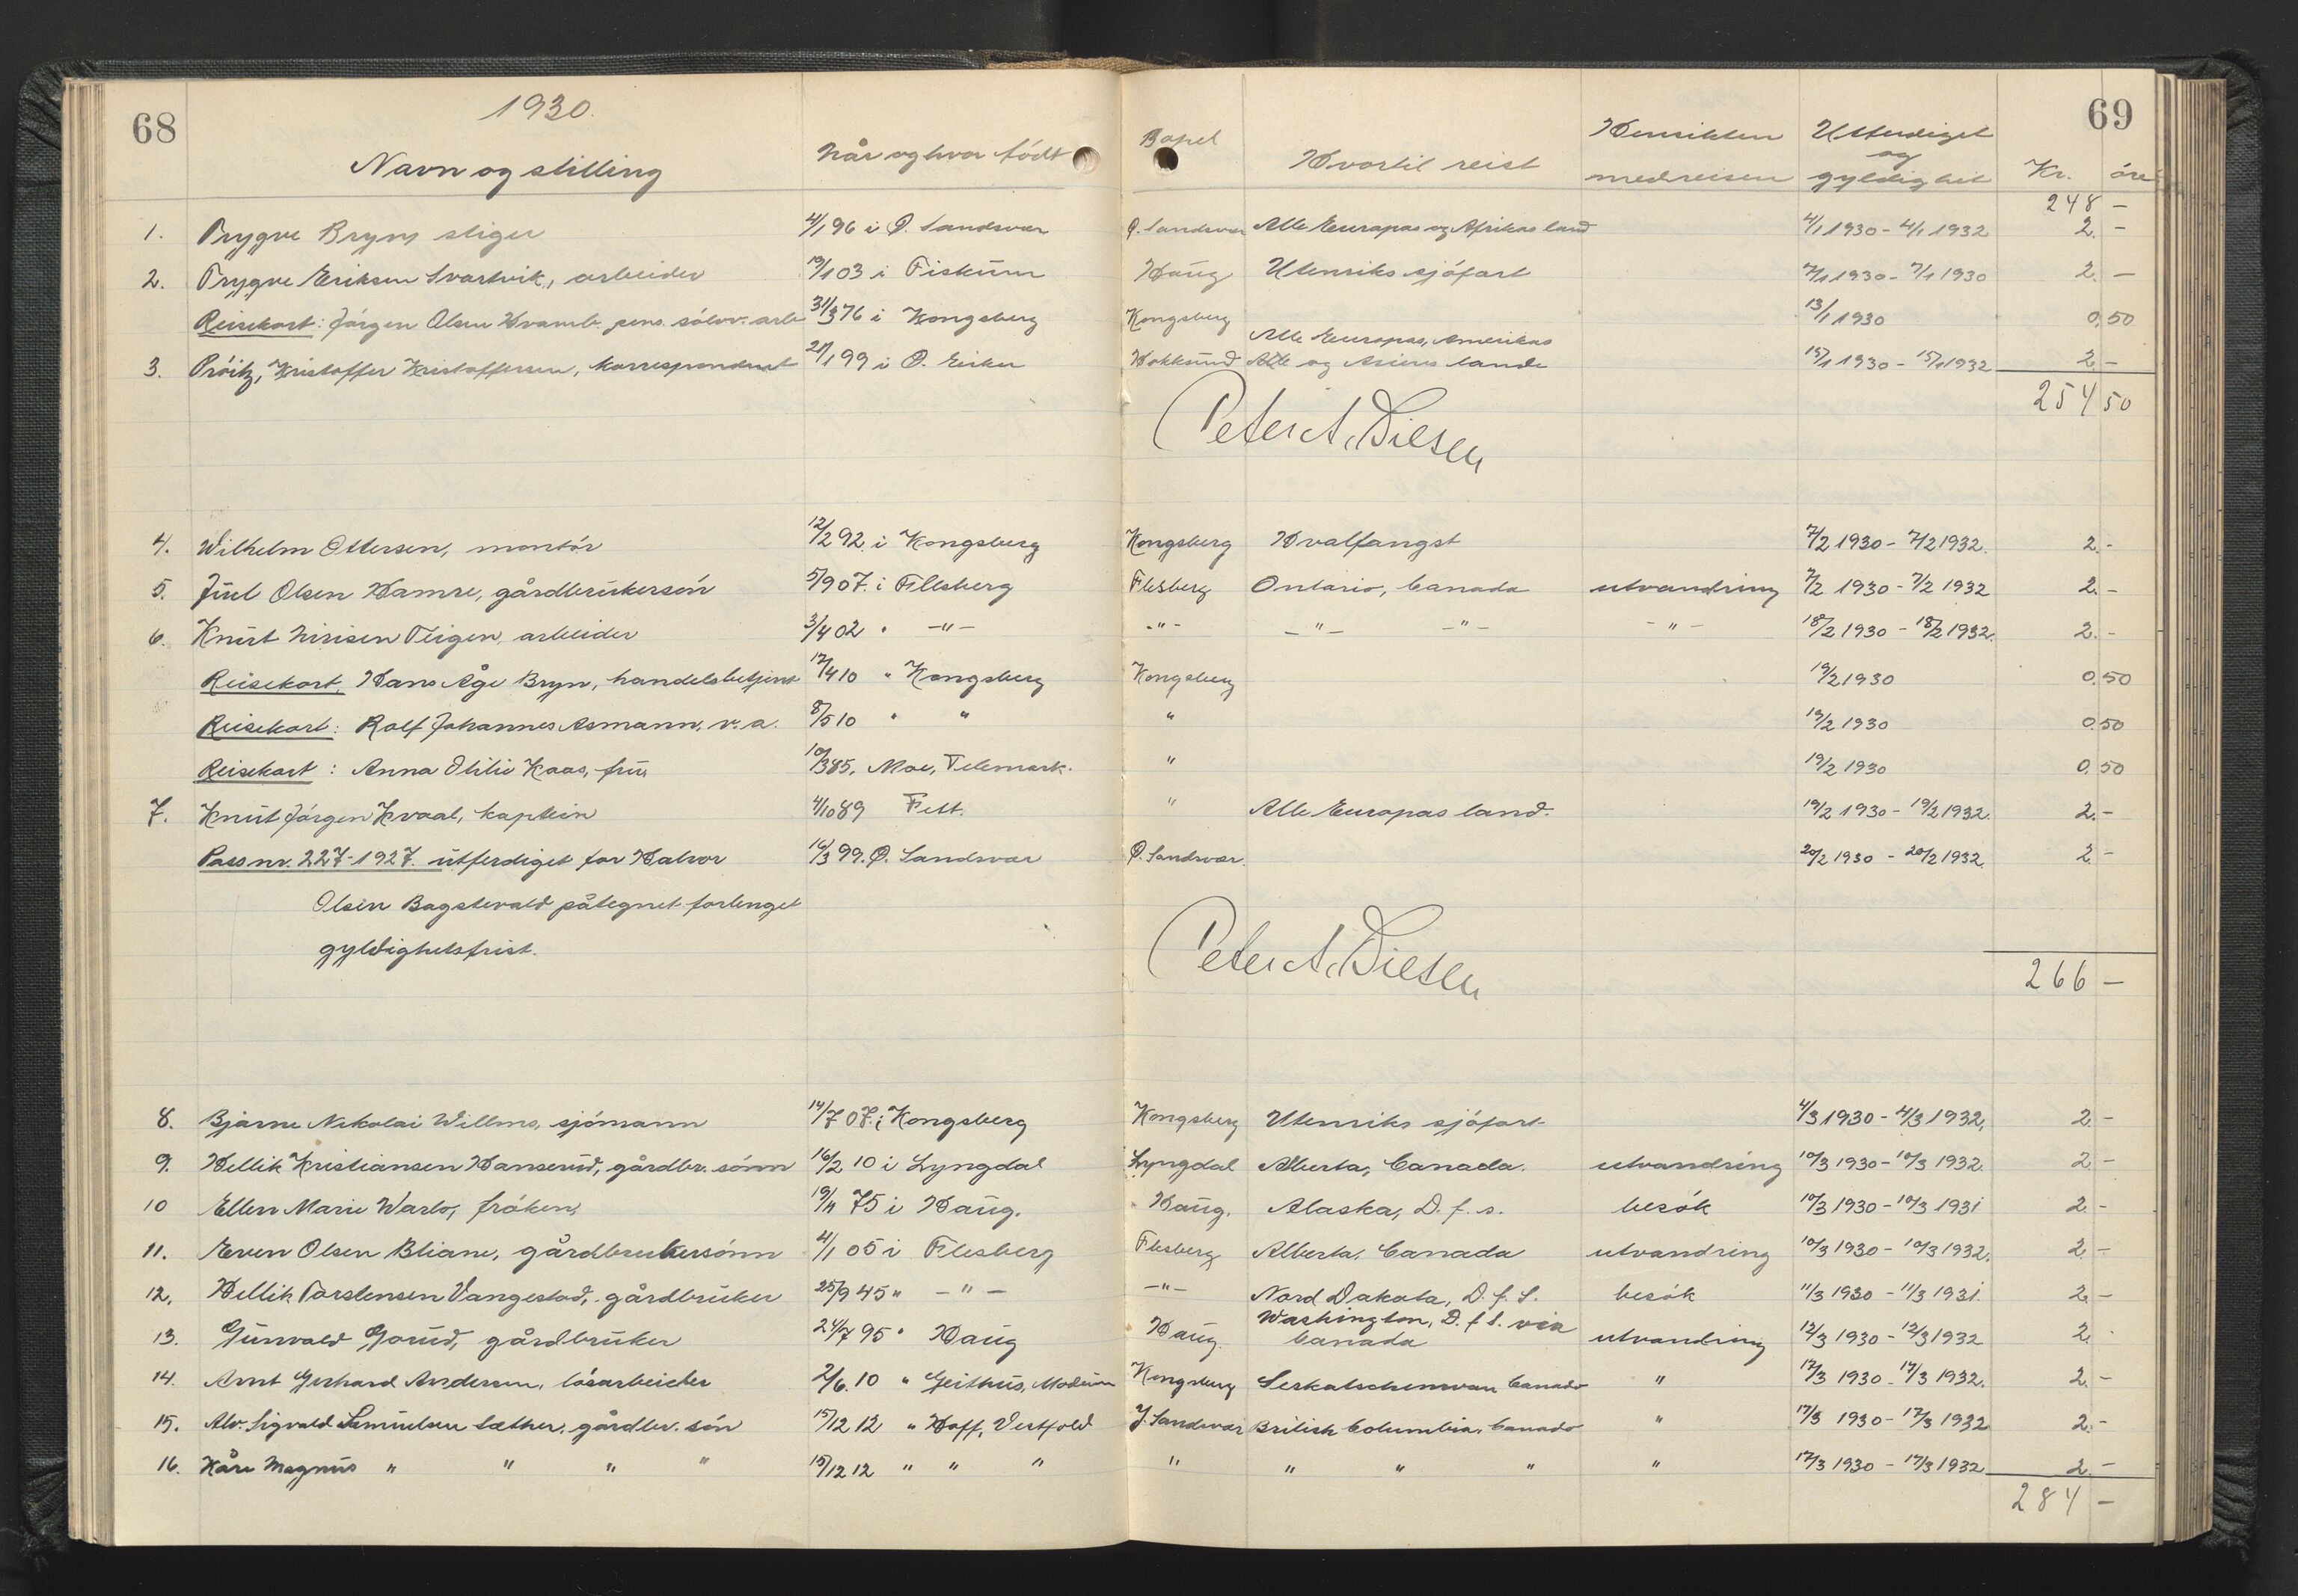 68
1930.
69
Navn og stilling når og hvor født Bopel Hvortil reist Hensikten med reisen Utferdiget og gyldighet Kr. öre
248 –
1. Trygve Bryn, stiger 4/1 96 i Ø. Sandsvær Ø. Sandsvær Alle Europas og Afrikas land 4/1 1930 - 4/1 1932 2. –
2. Trygve Eriksen Svartvik, arbeider 19/1 03 i Fiskum Haug Utenriks sjöfart 7/1 1930 - 7/1 1930 2. –
Reisekort: Jörgen Olsen pens. sölvv. arb. 31/3 76 i Kongsberg Kongsberg 13/1 1930 0.50
Alle Europas, Amerikas
3. Pröitz, Kristoffer Kristoffersen, korrespondent 21/1 99 i Ø. Eiker Hokksund og Asiens lande 15/1 1930 - 15/1 1932 2. –
254 50
Peter A. Diesen
4. Wilhelm Ottersen, montör 12/2 92 i Kongsberg Kongsberg Hvalfangst 7/2 1930 - 7/2 1932. 2. -
5. Juul Olsen Hamre, gårdbrukersön 5/9 07. i Flesberg Flesberg Ontario, Canada utvandring 7/2 1930 - 7/2 1932 2. -
6. Knut Nirisen Fleigen, arbeider 3/4 02 " -"- -"- -"- -"- -"- 18/2 1930 - 18/2 1932. 2. -
Reisekort, Hans Åge Bryn, handelsbetjent 17/4 10 " Kongsberg Kongsberg 19/2 1930 0.50
Reisekort: Rolf Johannes Asmann, v. a. 8/5 10 " " " 19/2 1930 0.50
Reisekort: Anna Otilie Kaas, fru 10/3 85, Moe, Telemark. " 19/2 1930 0.50
7. Knut Jörgen Kvaal, kaptein 4/10 89 Fett. " Alle Europas land. 19/2 1930 - 19/2 1932. 2. -
Pass nr. 227-1927. utferdiget for Halvor 16/3 99. Ø. Sandsvær Ø. Sandsvær. 20/2 1930 - 20/2 1932. 2. -
Olsen Bagstevold påtegnet forlenget
gyldighetsfrist.
Peter A. Diesen
266 –
8. Bjarne Nikolai Willms, sjömann 14/7 07. i Kongsberg Kongsberg Utenriks sjöfart 4/3 1930 - 4/3 1932. 2. -
9. Hellik Kristiansen Hanserud, gårdbr. sönn 16/2 10 i Lyngdal Lyngdal Alberta, Canada. utvandring 10/3 1930 - 10/3 1932. 2 -
10 Ellen Marie Warlo, fröken, 19/11 75 i Haug. Haug. Alaska, D. f. s. besök 10/3 1930 - 10/3 1931 2. -
11. Even Olsen Bliane, gårdbrukersönn 4/1 05 i Flesberg Flesberg Alberta, Canada utvandring 10/3 1930 - 10/3 1932. 2. -
12. Hellik Torstensen Vangestad, gårdbruker 25/9 45 " -"- -"- Nord Dakota, D. f. S. besök 11/3 1930 - 11/3 1931. 2. -
Washington, D. f S. via
13. Gunvald Gorud, gårdbruker 24/7 95 " Haug Haug. Canada utvandring 12/3 1930 - 12/3 1932 2. -
14. Arnt Gerhard Andersen, lösarbeider 2/6. 10 " Geithus, Modum Kongsberg Seskatschewan Canada " 17/3 1930 - 17/3 1932. 2. -
15. Alv. Sigvald Samuelsen Sæther, gårdbr. sön 15/12 12 " Hoff, Vestfold Y. Sandsvær British Columbia, Canada " 17/3 1930 - 17/3 1932 2. -
16. Kåre Magnus " " " " 15/12 12 " " " " " " " " 17/3 1930 - 17/3 1932 2. -
284 –